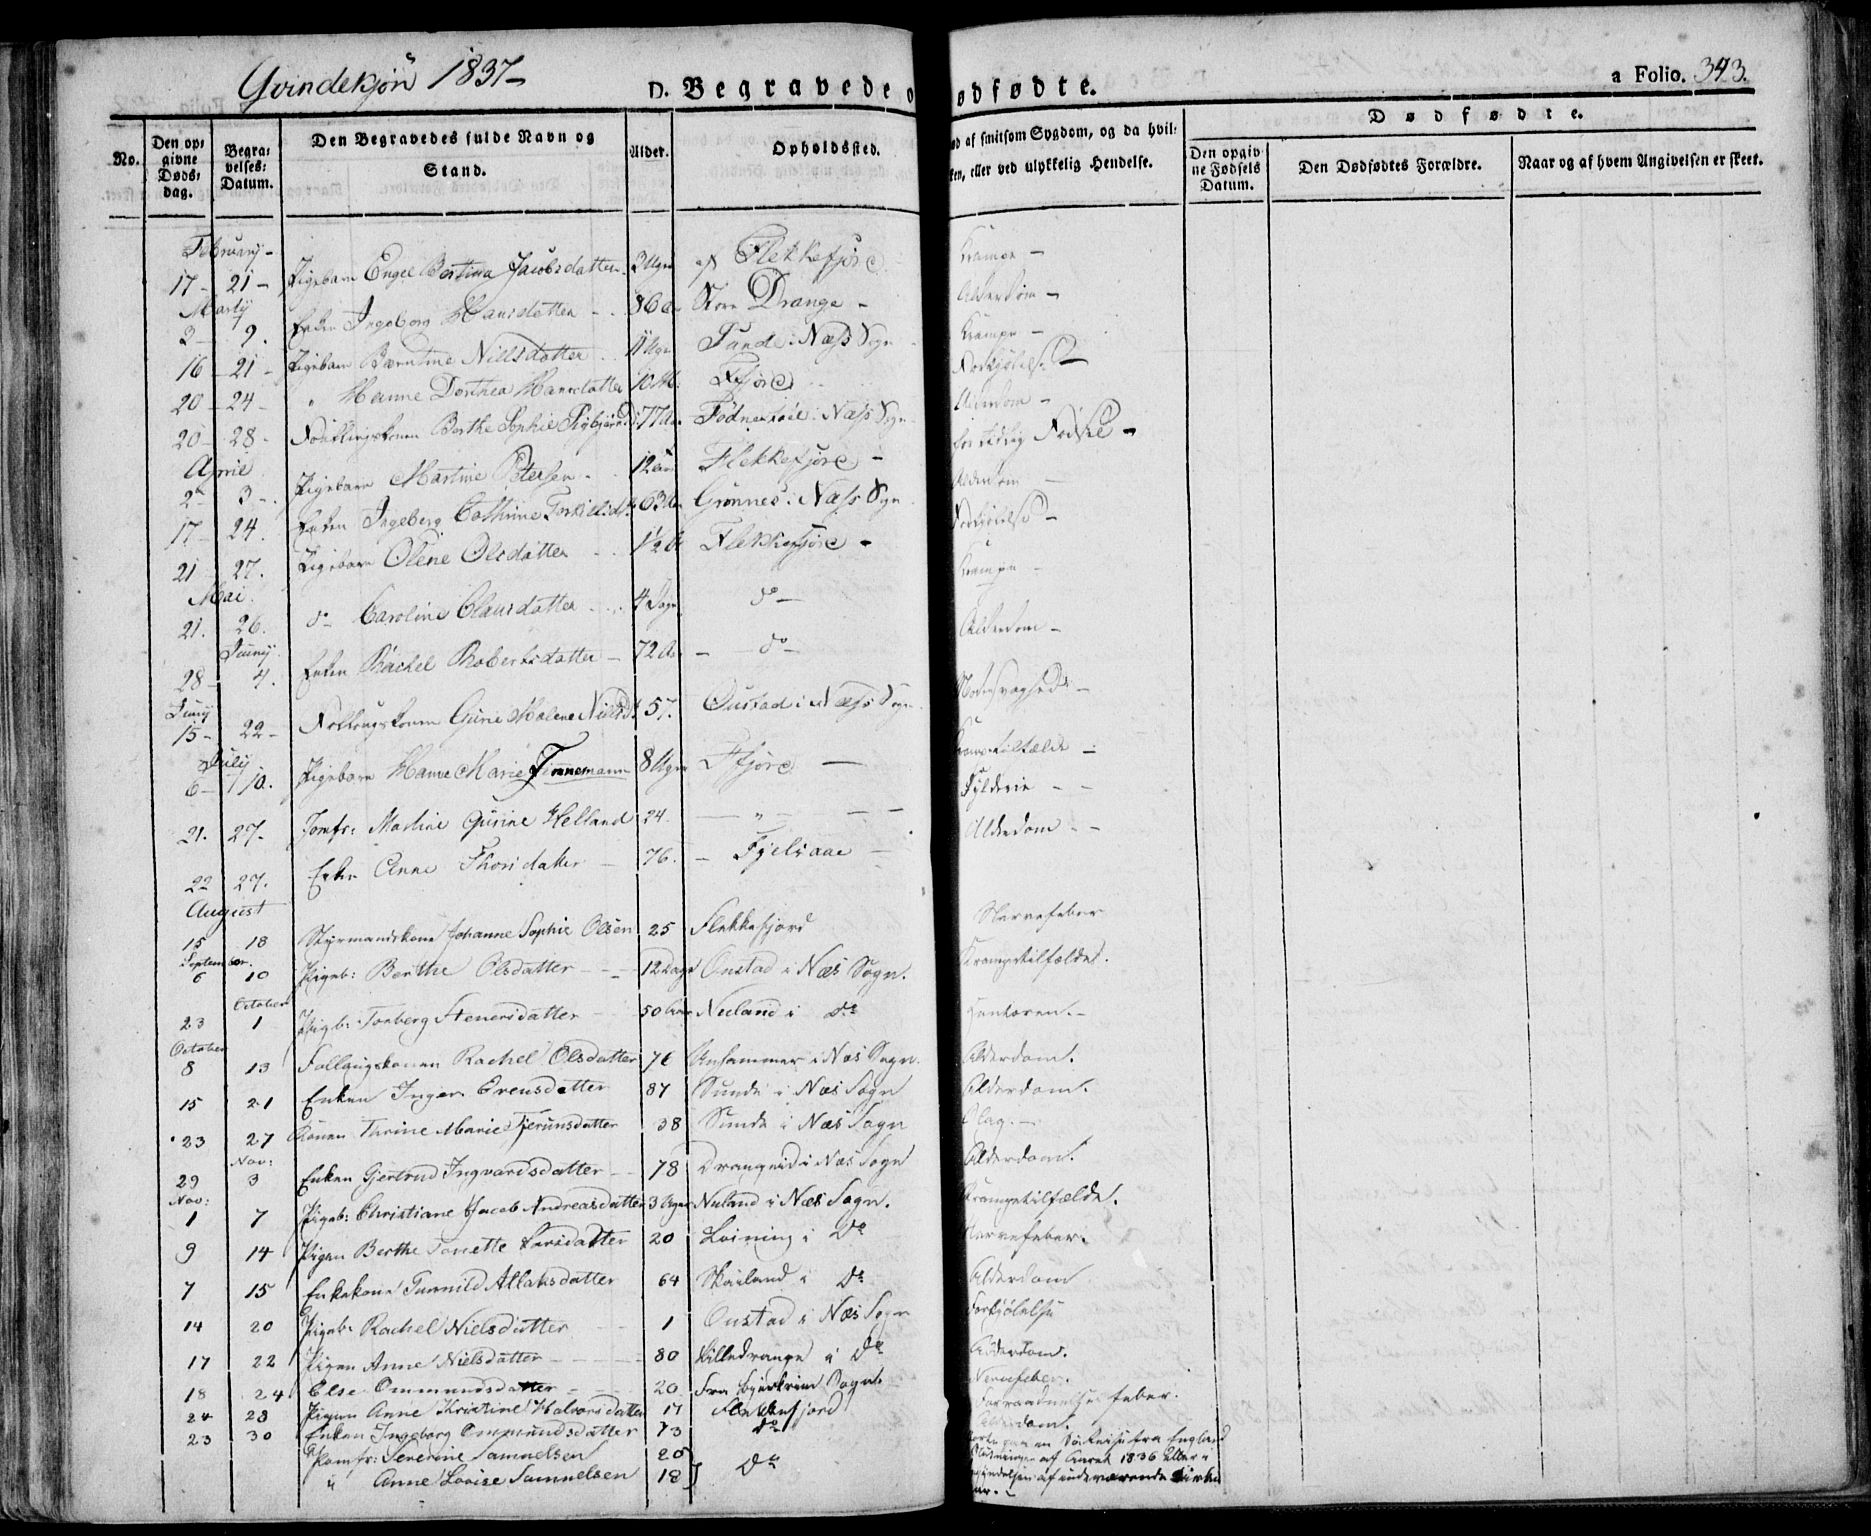 Qvindekjön 1837-
D. Begravede o
ødfødte.
a Folio. 343.
No.
Den op-
givne
Døds-
dag.
Begra-
velses-
Datum.
Den Begravedes fulde Navn og
Stand.
Alder.
Opholdssted.
ød af smitsom Sygdom, og da hvil-
ken, eller ved ulykkelig Hendelse.
Dødfødte.
Den opgiv-
ne Fødsels
Datum.
Den Dødfødtes Forældre.
Naar og af hvem Angivelsen er skeet.
February -
17 - 21 - Pigebarn Engel Bertina Jacobsdatter 3 Uger af Flekkefjord Krampe -
Marty
3 - 9. Enken Ingeborg Hansdatter - 86 Aar Store Drange - Alderdom -
16 - 21 - Pigebarn Berntine Nielsdatter 11 Uger Sunde i Næss Sogn Krampe -
20 - 24 - " Hanne Dorthea Hansdatter 10 M: Ffjord Forkjølelse -
20 - 28 - Berthe Sophie 77 Aar i Næss Sogn Alderdom -
April
2 - 3 - Pigebarn Martine Petersen - Flekkefjord - for tidlig Fødsel -
17 - 24. Enken Ingeborg Cathrine Torkildsdtr 63 Aar Grønnes i Næss Sogn Alderdom -
21 - 27. Pigebarn Olene Olsdatter 1½ A Flekkefjord - Forkjølelse -
Mai.
21. 26. do Caroline Clausdatter 4 Dage do - Krampe -
Juny
28 - 4. Enken Rachel Robertsdatter - 72 Aar - do - Alderdom -
Juny
15 - 22 - Gurie Malene Nielsdt 57. Oustad i Næss Sogn Moders
July
6 - 10. Pigebarn Hanne Marie Tinnemann 8 Uger Ffjord - Krampetilfælde -
21. 27. Jomfr: Martine Gurine Helland 24. - " - -
22 27. Enken Anne Thorsdatter - 76. - Fjelsaae - Alderdom -
August
15 18 Styrmandskone Johanne Sophie Olsen 25 Flekkefjord Nervefeber
September.
6 10 Pigeb: Berthe Olsdatter - 12 Dage Oustad i Næs Sogn. Krampetilfælde.
October
23 1 Pigeb: Torberg Stenersdatter 50 Nuland i do
October
8 13 Rachel Olsdatter 76 i Næs Sogn. Alderdom.
15 21 Enken Inger 87 Sunde i Næs Sogn Alderdom.
23 27 Konen Thrine Marie 38 Sunde i Næs Sogn Slag. -
Nov:
29 3 Enken Gjertrud Ingvardsdatter - 78 Drangeid i Næs Sogn Alderdom.
Nov:
1 7 Pigeb: Christiane Jacob Andreasdatter 3 Uger Nuland i Næs Sogn. Krampetilfælde.
9 14 Pigen Berthe Tonette Larsdatter 20 Loining i do Nervefeber.
7 15 Enkekone Gunnild Atlaksdatter 64 Skaeland i do Alderdom
14 20 Pigeb: Rachel Nielsdatter 1 Oustad i Næs Sogn Forkjølelse
17 22 Pigen Anne Nielsdatter - 80 Lilledrange i do Alderdom.
18 24 Else Ommundsdatter 20 Fra Sogn. Nervefeber.
24 28 Pigen Anne Kristine Halvorsdatter 17 Flekkefjord Forraadnelses feber.
23 30 Enken Ingeborg Ommundsdatter 73 do Alderdom.
Jomfr: Severine Samuelsen 20
" Anne Lovise Samuelsen 18 } do
paa en Søreise fra England
af Aaret 1836 eller i
begyndelsen af indeværende
aar. -